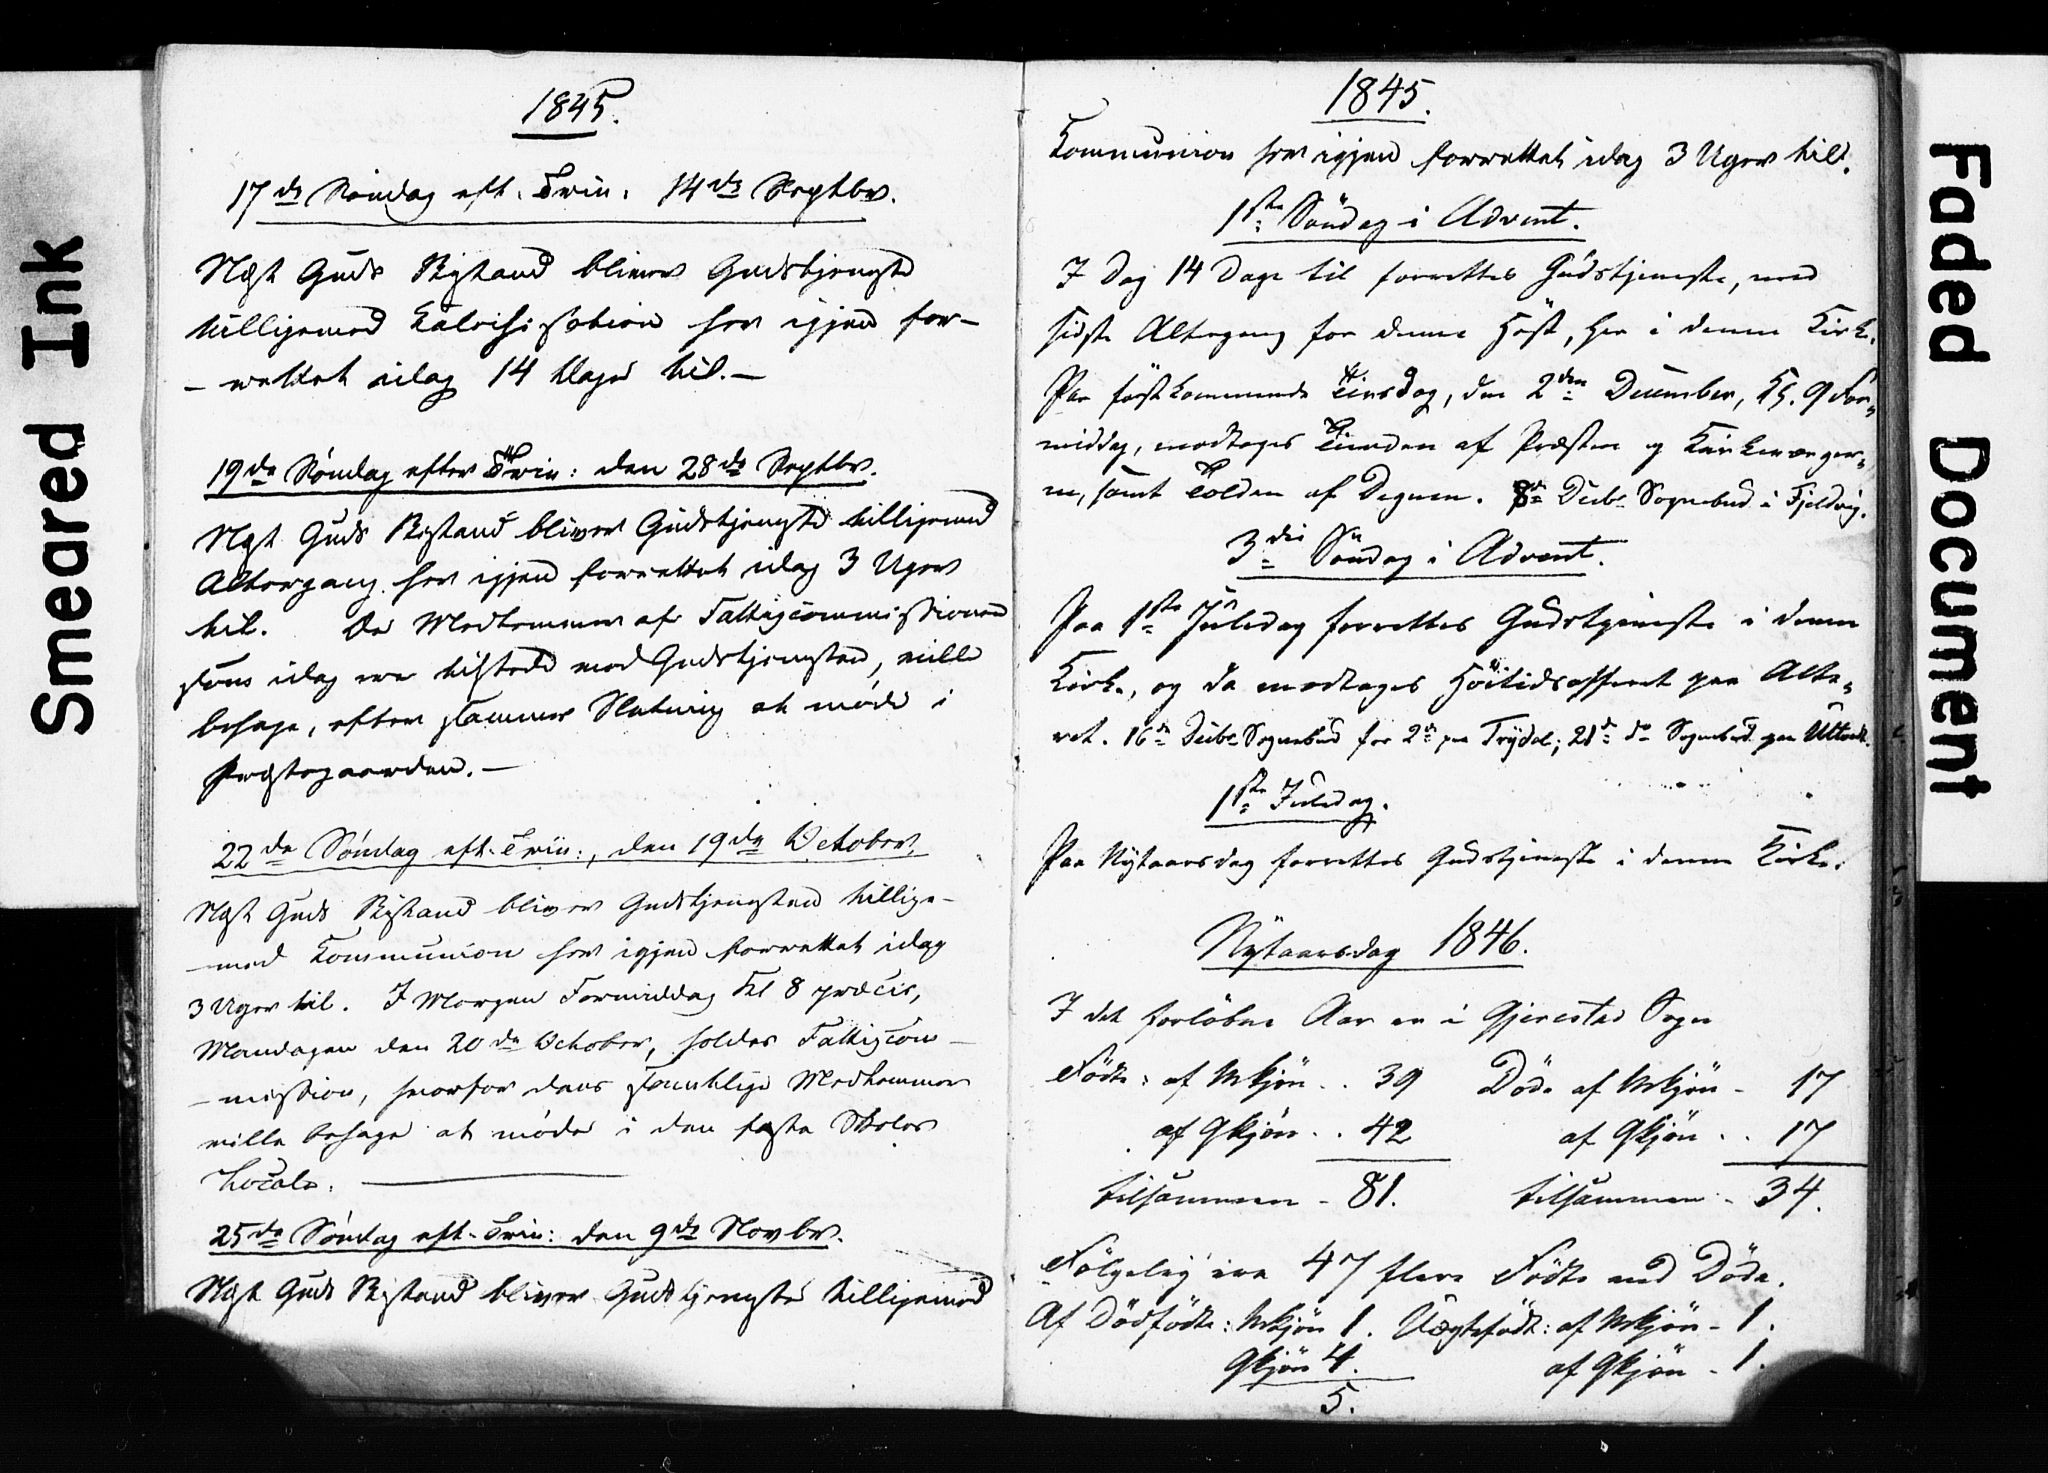 Smeared Ink
1845.
17de Søndag eft. Trin: 14de Septbr.
Næst Guds Bistand bliver Gudstjeneste
tilligemed Catechisation her igjen for-
- rettet idag 14 Dage til. -
19de Søndag efter Trin: den 28de Septbr.
Næst Guds Bistand bliver Gudstjeneste tilligemed
Altergang her igjen forrettet idag 3 Uger
til. De Medlemmer af Fattigcommissionen
som idag ere tilstede ved Gudstjenesten, ville
behage, efter sammes Slutning at møde i
Præstegaarden. -
22de Søndag eft. Trin:, den 19de October.
Næst Guds Bistand bliver Gudstjenesten tillige-
- med Communion her igjen forrettet idag
3 Uger til. I Morgen Formiddag Kl 8 præcis,
Mandagen den 20de October, holdes Fattigcom-
- mission, hvorfor dens samtlige Medlemmer
ville behage at møde i den faste Skoles
Locale.
25de Søndag eft. Trin: den 9de Novbr.
Næst Guds Bistand bliver Gudstjeneste tilligemed
1845.
Communion her igjen forrettet idag 3 Uger till.
1ste Söndag i Advent.
I Dag 14 Dage til forrettes Gudstjeneste, med
sidste Altergang for denne Höst, her i denne Kirke.
Paa förstkommende Tirsdag, den 2den December, Kl. 9 For-
middag, modtages Tienden af Præsten og Kirkeværger-
ne, samt Tolden af Degnen. 8de Decbr Sognebud i Fjeldvig.
3die Söndag i Advent.
Paa 1ste Juledag forrettes Gudstjeneste i denne
Kirke, og da modtages Höitidsofferet paa Alte-
ret. 16de Decbr Sognebud for 2de paa Trydal; 21de do Sognebud paa
1ste Juledag.
Paa Nytaarsdag forrettes Gudstjeneste i denne Kirke.
Nytaarsdag 1846.
I det forløbne Aar er i Gjerestad Sogn
Födte: af Mkjön . . 39 Döde af Mkjön - 17
af Qkjön . . 42 af Qkjön . . 17
tilsammen - 81. tilsammen - 34.
Fölgelig ere 47 flere Födte end Döde.
Af Dödfödte: Mkjön 1. Uægtefödt: af Mkjön - 1.
Qkjön 4. af Qkjön - 1.
5.
Faded Document